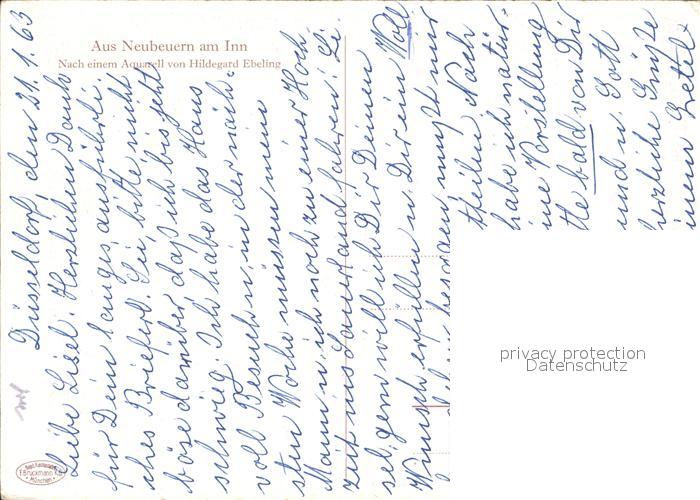 Aus Neubeuern am Inn
Nach einem Aquarell von Hildegard Ebeling
Düsseldorf, den 21.1.63
Liebe Lisel. Herzlichen Dank
für Dein langes ausführli-
ches Briefert. Sei bitte nicht
böse darüber daß ich bis jetzt
schwieg. Ich habe das Haus
voll Besuch u. in der näch-
sten Woche müssen mein
Mann u. ich noch zu einer Hoch
zeit ins Sauerland fahren. Li.
sel, gern will ich Dir Deinen
Wunsch erfüllen u. Dir ein Voll
besorgen mußt mir
theilen Nach
habe ich natür-
ine Vorstellung
tte bald von Dir
und u. Gott
herzliche Grüße
Best. Kartenserie
F. Bruckmann KG
München
privacy protection
Datenschutz